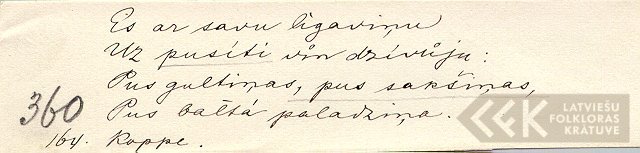 Es ar savu līgaviņu
Uz pusīti vin dzīvuju:
Pus gultiņas, pus sakšiņas,
Pus baltā paladziņa.
360
164. Koppe.
LATVIEŠU
FOLKLORAS
KRĀTUVE